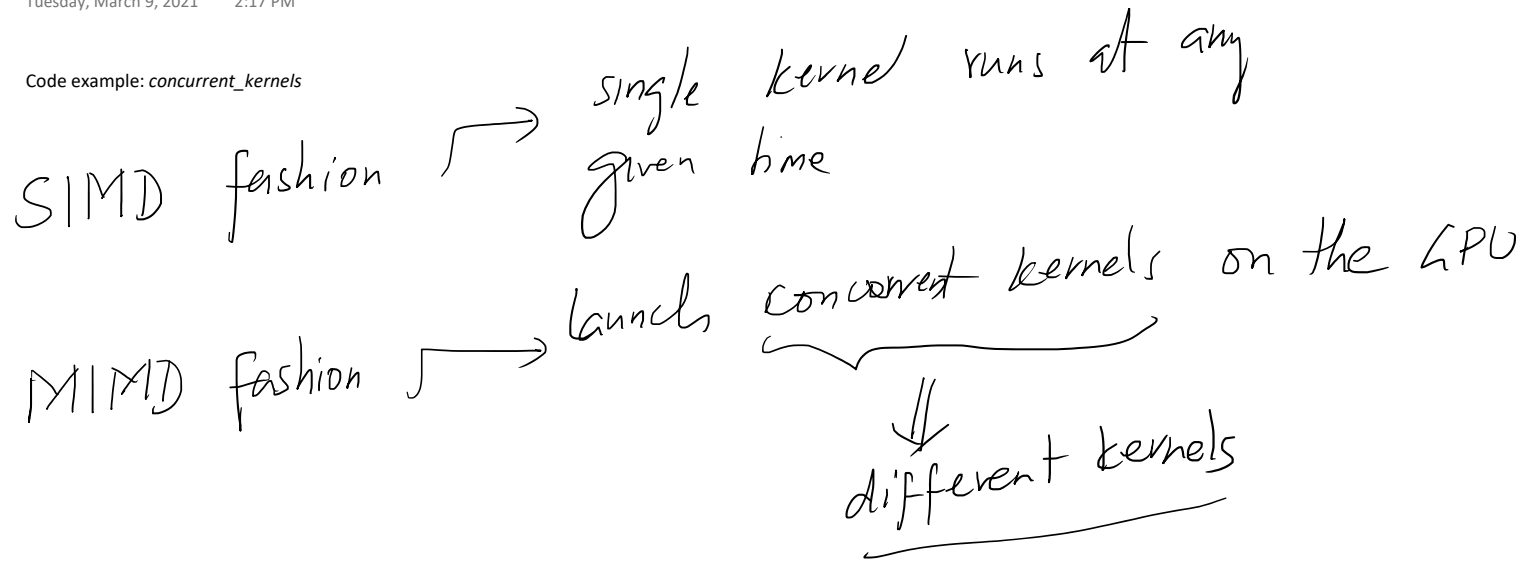 Tuesday, March 9, 2021 2:17 PM
Code example: concurrent_kernels
single kernel runs at any
given time
SIMD fashion
launch concurrent kernels on the GPU
MIMD fashion
different kernels